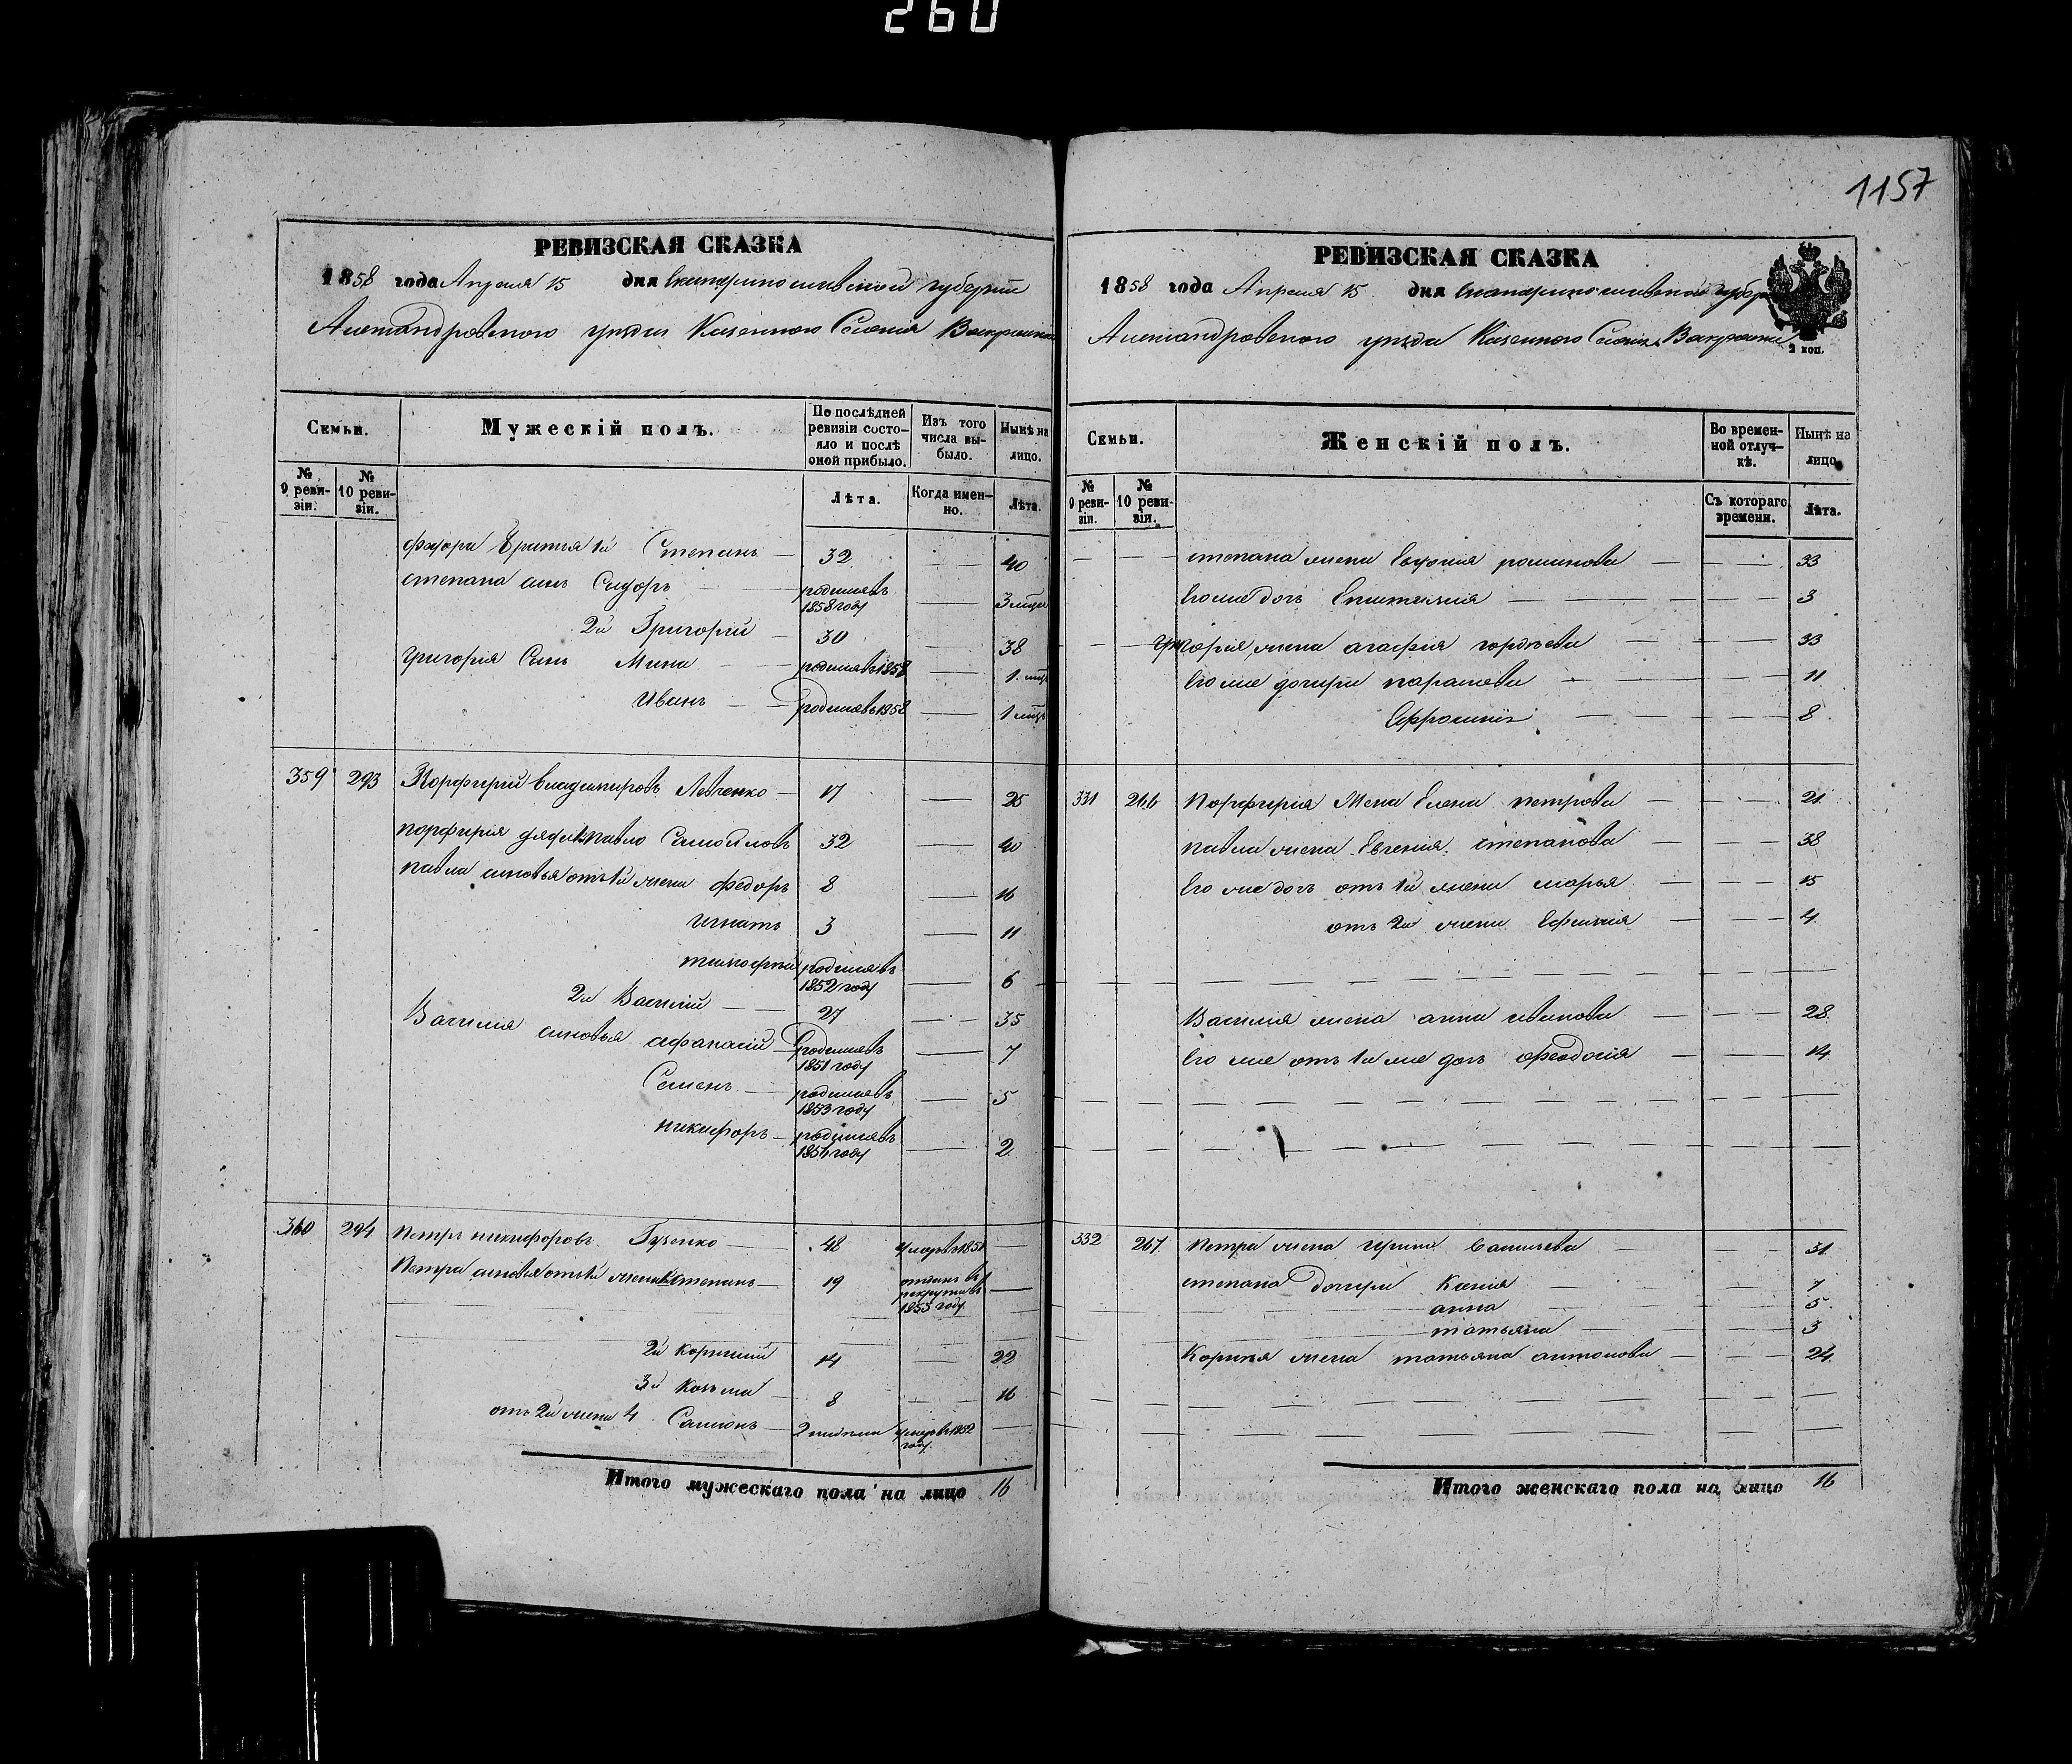 260
РЕВИЗСКАЯ СКАЗКА
1858 года Апреля 15 дня Екатеринославской губернии
Александровского уезда Казенного Селения Воскресенки
Семьи.
Мужескій полъ.
По послѣдней ревизіи состояло и послѣ оной прибыло.
Изъ того числа выбыло.
Нынѣ на лицо.
№ 9 ревизіи.
№ 10 ревизіи.
Лѣта.
Когда именно.
Лѣта.
братья 1й Степанъ 32 40
степана сынъ Сидоръ родился въ 1858 году 3 мѣся
2й Григорій 30 38
григорія Сынъ Мина родился въ 1858 1 мѣс
Иванъ родился въ 1858 1 мѣс
359 293 Порфирій владимировъ Левченко 17 25
порфирія дядя 1й павло Самойловъ 32 40
павла сыновья отъ 1й жены федоръ 8 16
игнатъ 3 11
тимофей родился въ 1852 году 6
2й Василій 27 35
Василія сыновья афанасій родился въ 1851 году 7
Семенъ родился въ 1853 году 5
никифоръ родился въ 1856 году 2
360 294 Петръ никифоровъ Гузенко 48 умеръ въ 1851
Петра сыновья отъ 1й жены 1й Степанъ 19 отданъ въ рекруты въ 1853 году
2й корнилій 14 22
3й козьма 8 16
отъ 2й жены 4 Самсонъ 2 недели умеръ въ 1852 году
Итого мужескаго пола на лицо 16
1157
РЕВИЗСКАЯ СКАЗКА
1858 года Апреля 15 дня Екатеринославской губерн
Александровского уезда Казенного Селения Воскресенки
2 коп.
Семьи.
Женскій полъ.
Во временной отлучкѣ.
Нынѣ на лицо
№ 9 ревизіи.
№ 10 ревизіи.
Съ котораго времени.
Лѣта.
степана жена Евдокія романова 33
Его же дочь 3
григорія жена агафія гордѣева 33
Его же дочери парасковья 11
Ефросинія 8
331 266 Порфирія Жена Елена петрова 21
павла жена Евгенія степанова 38
Его же дочь отъ 1й жены марья 15
отъ 2й жены Ефимія 4
Василія жена анна иванова 28
Его же отъ 1й же дочь феодосія 14
332 267 Петра жена ирина Савельева 31
степана Дочери Ксенія 7
анна 5
татьяна 3
Корнея жена татьяна антонова 24
Итого женскаго пола на лицо 16